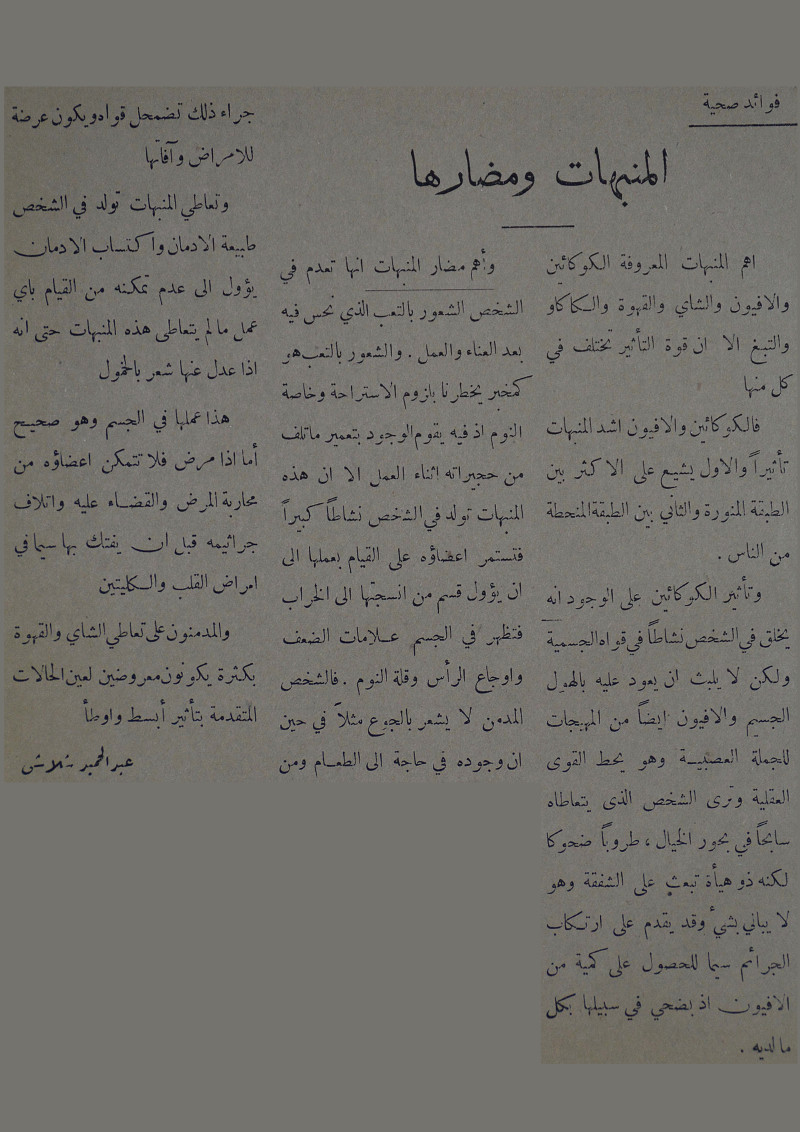 فوائد صحية
المنبهات ومضارها
اهم المنبهات المعروفة الكوكائين
والافيون والشاي والقهوة والكاكاو
والتبغ الا ان قوة التأثير تختلف في
كل منها
فالكوكائين والافيون اشد المنبهات
تأثيراً والاول يشيع على الاكثر بين
الطبتة المنورة والثاني بين الطبقة المنحطة
من الناس .
وتأثير الكوكائين على الوجود انه
يخلق في الشخص نشاطاً في قواه الجسمية
ولكن لا يلبث ان يعود عليه بالهول
الجسيم والافيون ايضاً من المهيجات
للجملة العصبية وهو يحط القوى
العقلية وترى الشخص الذى يتعاطاه
سابحاً في بحور الخيال ، طروباً ضحوكا
لكنه ذو هيأة تبعث على الشفقة وهو
لا يبالي بشيء وقد يقدم على ارتكاب
الجرائم سيما للحصول على كمية من
الافيون اذ يضحي في سبيلها بكل
ما لديه .
وأهم مضار المنبهات انها تعدم في
الشخص الشعور بالتعب الذي نحس فيه
بعد العناء والعمل . والشعور بالتعب هو
كمخبر يخطرنا بلزوم الاستراحة وخاصة
النوم اذ فيه يقوم الوجود بتعمير ماتلف
من حجيراته اثناء العمل الا ان هذه
المنبهات تولد في الشخص نشاطاً كبيراً
فتستمر اعضاؤه على القيام بعملها الى
ان يؤول قسم من انسجتها الى الخراب
فتظهر في الجسم علامات الضعف
واوجاع الرأس وقلة النوم . فالشخص
المدمن لا يشعر بالجوع مثلاً في حين
ان وجوده في حاجة الى الطعام ومن
جراء ذلك تضمحل قواه ويكون عرضة
للامراض وآفاتها
وتعاطي المنبهات تولد في الشخص
طبيعة الادمان واكتساب الادمان
يؤول الى عدم تمكنه من القيام باي
عمل ما لم يتعاطى هذه المنبهات حتى انه
اذا عدل عنها شعر بالخمول
هذا عملها في الجسم وهو صحيح
أما اذا مرض فلا تتمكن اعضاؤه من
محاربة المرض والقضاء عليه واتلاف
جراثيمه قبل ان يفتك بها سيما في
امراض القلب والكليتين
والمدمنون على تعاطي الشاي والقهوة
بكثرة يكونون معروضين لعين الحالات
المتقدمة بتأثير أبسط واوطأ